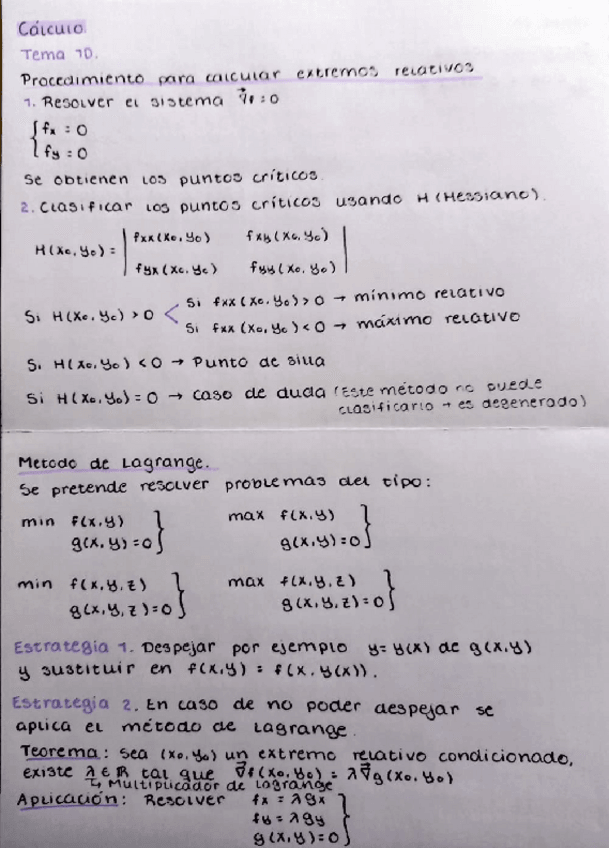 Cálculo
Tema 10.
Procedimiento para calcular extremos relativos
1. Resolver el sistema ∇⃗f = 0
{ fx = 0
fy = 0
Se obtienen los puntos críticos.
2. Clasificar los puntos críticos usando H (Hessiano).
H(x₀, y₀) = | fxx(x₀, y₀) fxy(x₀, y₀) |
| fyx(x₀, y₀) fyy(x₀, y₀) |
Si fxx(x₀, y₀) > 0 → mínimo relativo
Si H(x₀, y₀) > 0 <
Si fxx(x₀, y₀) < 0 → máximo relativo
Si H(x₀, y₀) < 0 → Punto de silla
Si H(x₀, y₀) = 0 → caso de duda (Este método no puede
clasificarlo → es degenerado)
Metodo de Lagrange.
Se pretende resolver problemas del tipo:
min f(x,y) } max f(x,y) }
g(x,y) = 0 g(x,y) = 0
min f(x,y,z) } max f(x,y,z) }
g(x,y,z) = 0 g(x,y,z) = 0
Estrategia 1. Despejar por ejemplo y = y(x) de g(x,y)
y sustituir en f(x,y) = f(x, y(x)).
Estrategia 2. En caso de no poder despejar se
aplica el método de Lagrange.
Teorema: Sea (x₀, y₀) un extremo relativo condicionado,
existe λ ∈ ℝ tal que ∇⃗f(x₀, y₀) = λ∇⃗g(x₀, y₀)
↳ Multiplicador de Lagrange
Aplicación: Resolver fx = λgx }
fy = λgy
g(x,y) = 0